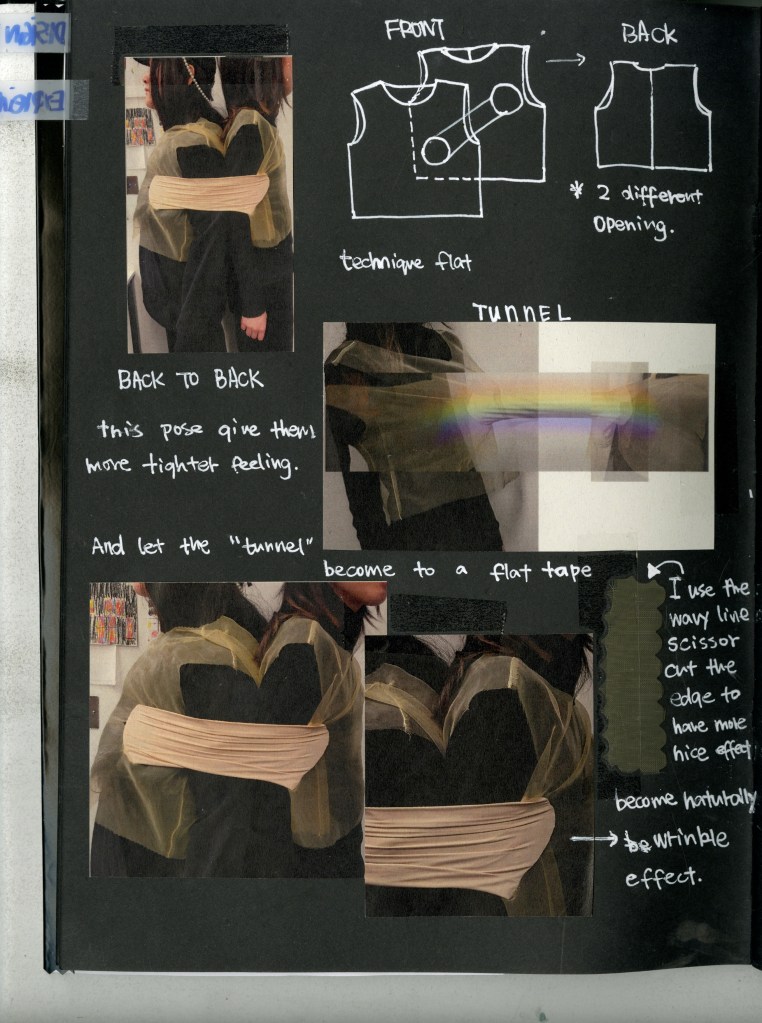 DESIGN
FRONT
BACK
* 2 different
opening.
technique flat
TUNNEL
BACK TO BACK
this pose give them
more tighter feeling.
And let the "tunnel"
become to a flat tape
I use the
wavy line
scissor
cut the
edge to
have more
nice effect
become naturally
be wrinkle
effect.